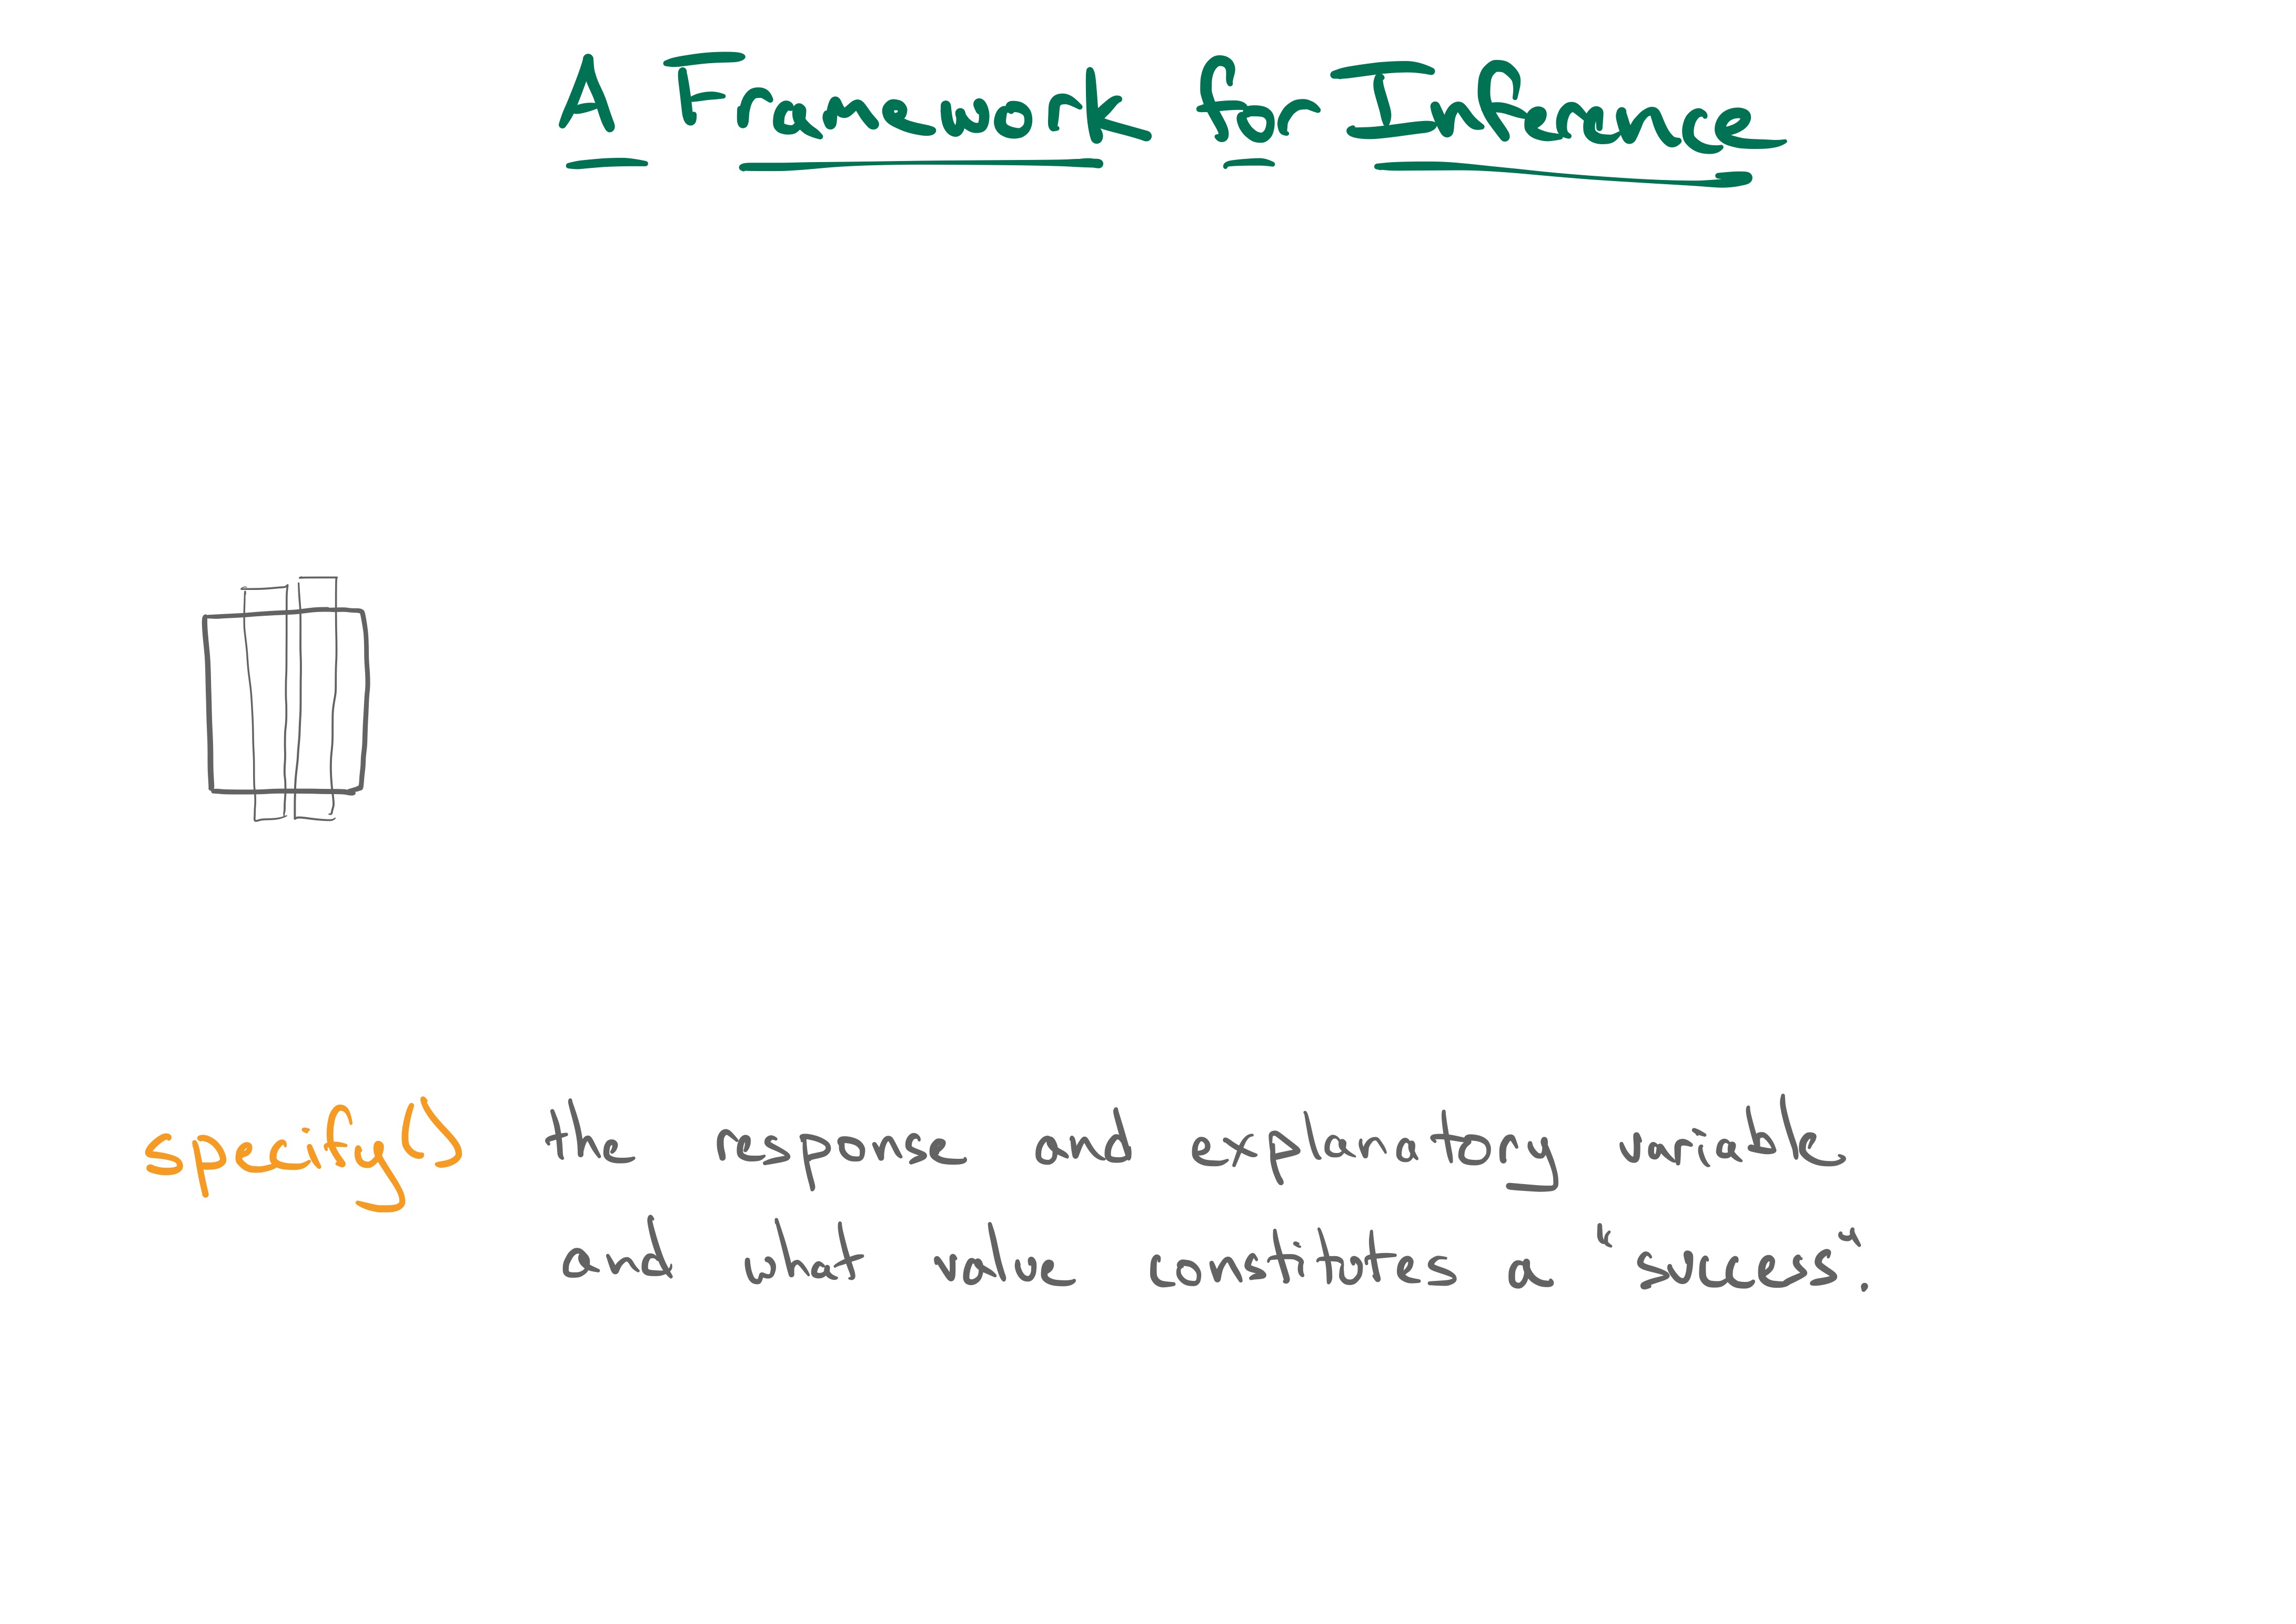 A Framework for Inference
specify() the response and explanatory variable
and what value constitutes a "success".